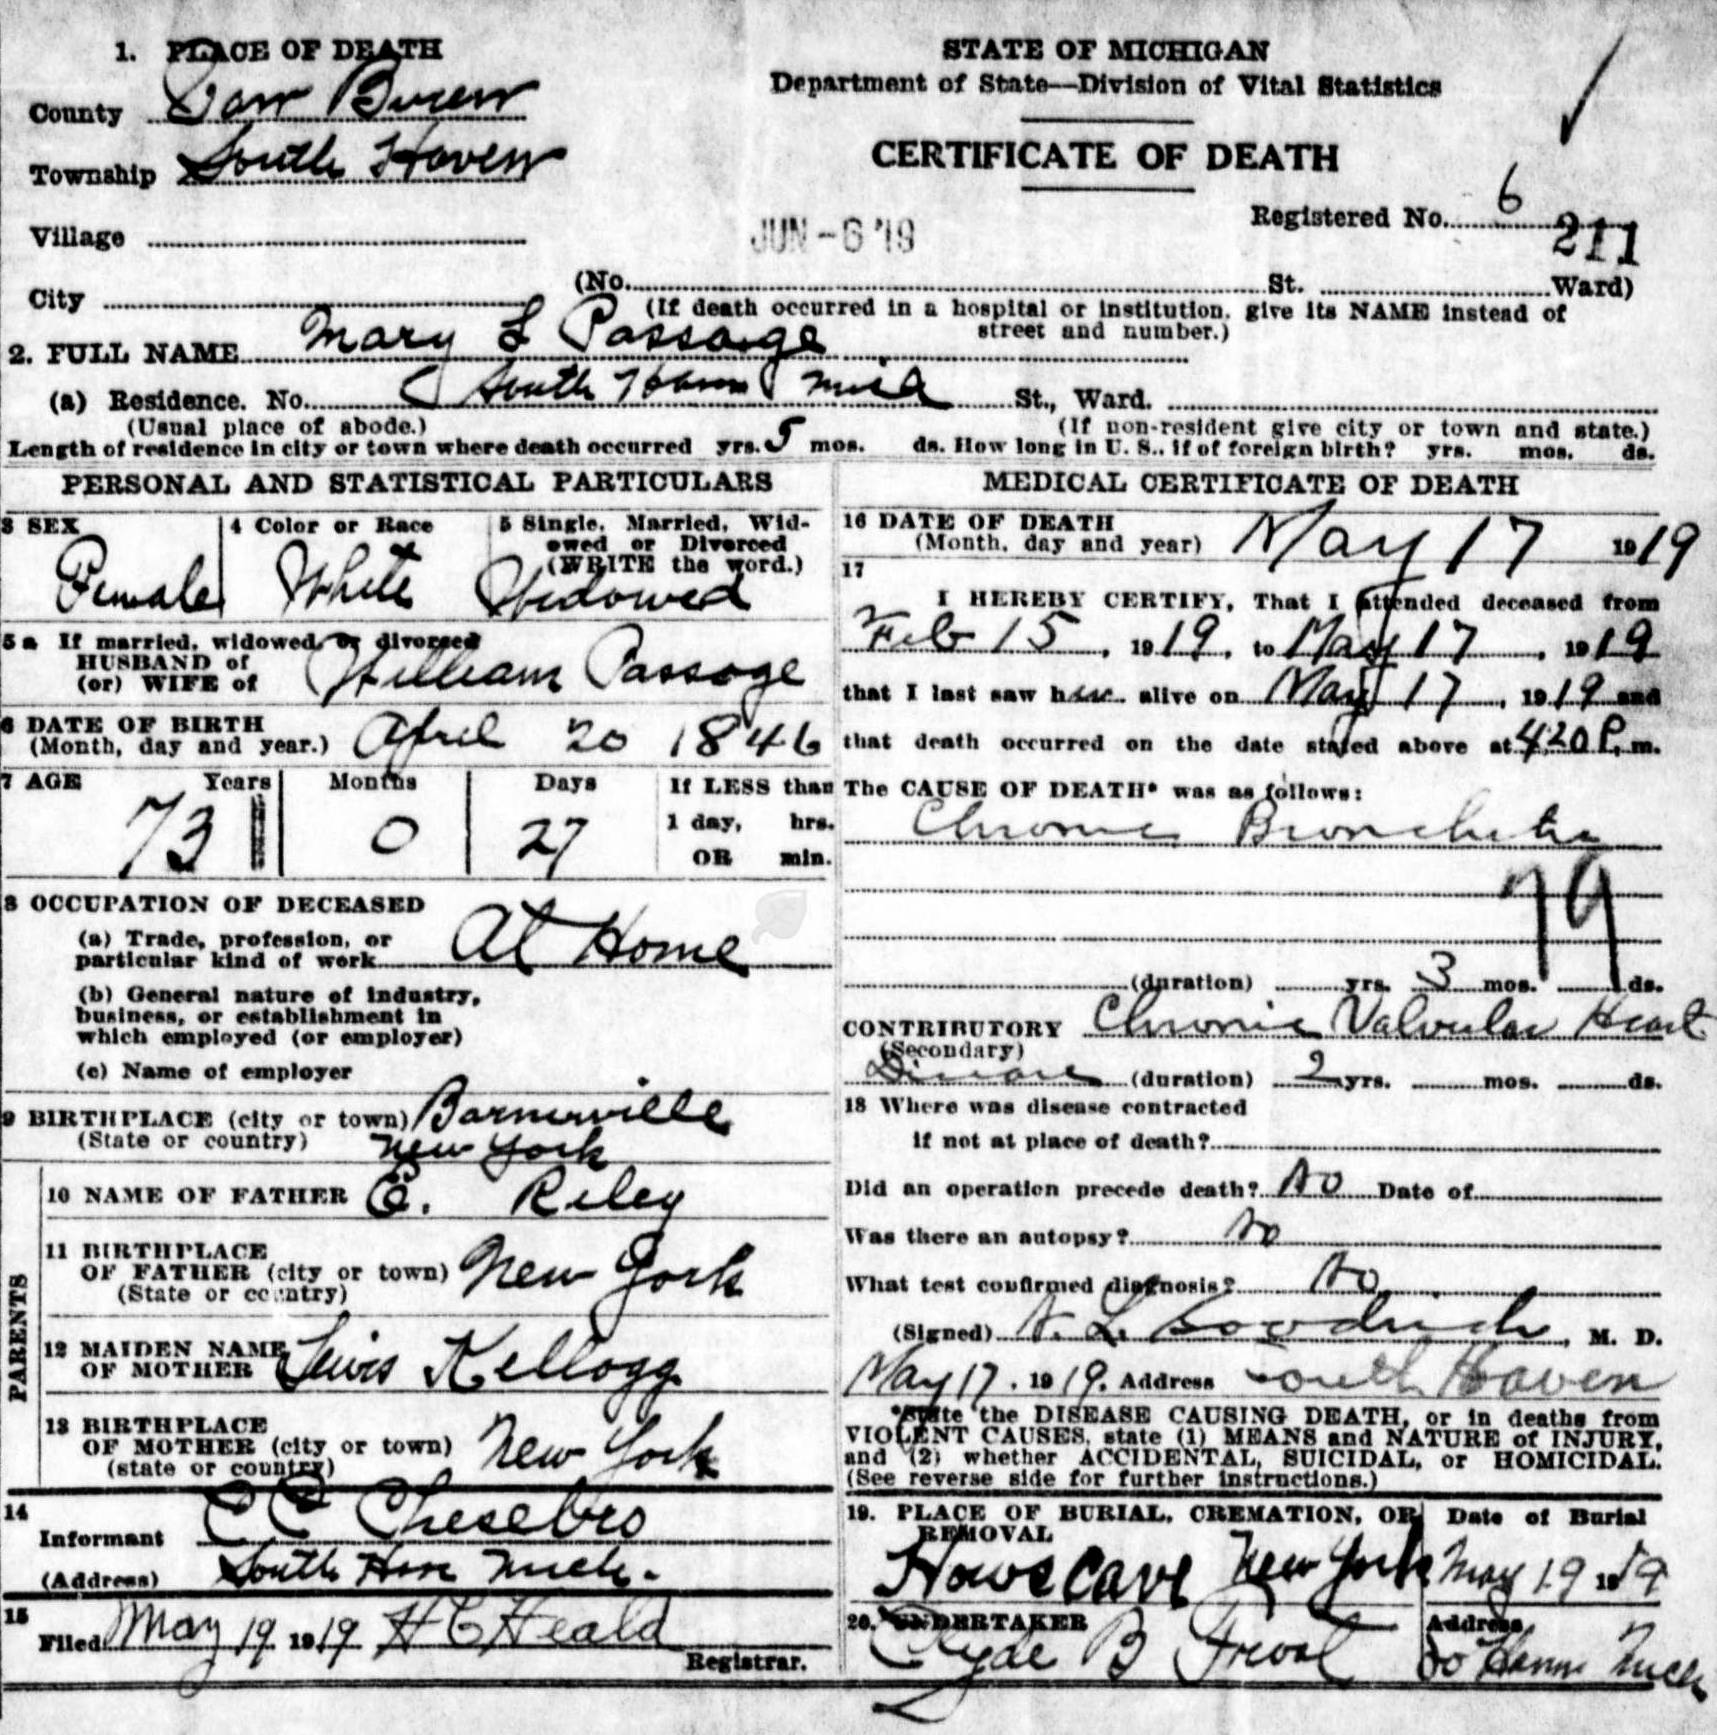 1. PLACE OF DEATH
County Van Buren
Township South Haven
Village
City
STATE OF MICHIGAN
Department of State—Division of Vital Statistics
CERTIFICATE OF DEATH
Registered No. 6
211
JUN -6 '19
(No. St. Ward)
(If death occurred in a hospital or institution, give its NAME instead of
street and number.)
2. FULL NAME Mary L Passage
(a) Residence. No. South Haven Mich St., Ward.
(Usual place of abode.) (If non-resident give city or town and state.)
Length of residence in city or town where death occurred yrs. 5 mos. ds. How long in U. S., if of foreign birth? yrs. mos. ds.
PERSONAL AND STATISTICAL PARTICULARS
3 SEX
Female
4 Color or Race
White
5 Single, Married, Wid-
owed or Divorced
(WRITE the word.)
Widowed
5a If married, widowed, or divorced
HUSBAND of
(or) WIFE of William Passage
6 DATE OF BIRTH
(Month, day and year.) April 20 1846
7 AGE Years Months Days If LESS than
73 0 27 1 day, hrs.
OR min.
8 OCCUPATION OF DECEASED
(a) Trade, profession, or
particular kind of work At Home
(b) General nature of industry,
business, or establishment in
which employed (or employer)
(c) Name of employer
9 BIRTHPLACE (city or town) Barnerville
(State or country) New York
PARENTS
10 NAME OF FATHER E. Riley
11 BIRTHPLACE
OF FATHER (city or town) New York
(State or country)
12 MAIDEN NAME
OF MOTHER Lewis Kellogg
13 BIRTHPLACE
OF MOTHER (city or town) New York
(state or country)
14
Informant C C Chesebro
(Address) South Haven Mich.
15
Filed May 19 1919 H C Heald
Registrar.
MEDICAL CERTIFICATE OF DEATH
16 DATE OF DEATH
(Month, day and year) May 17 1919
17
I HEREBY CERTIFY, That I attended deceased from
Feb 15, 1919, to May 17, 1919
that I last saw her alive on May 17, 1919 and
that death occurred on the date stated above at 4.20 P. m.
The CAUSE OF DEATH* was as follows:
Chronic Bronchitis
79
(duration) yrs. 3 mos. ds.
CONTRIBUTORY Chronic Valvular Heart
(Secondary)
Disease (duration) 2 yrs. mos. ds.
18 Where was disease contracted
if not at place of death?
Did an operation precede death? No Date of
Was there an autopsy? No
What test confirmed diagnosis? No
(Signed) N. L. Goodrich, M. D.
May 17, 1919. Address South Haven
*State the DISEASE CAUSING DEATH, or in deaths from
VIOLENT CAUSES, state (1) MEANS and NATURE of INJURY,
and (2) whether ACCIDENTAL, SUICIDAL, or HOMICIDAL.
(See reverse side for further instructions.)
19. PLACE OF BURIAL, CREMATION, OR
REMOVAL
Howe Cave New York
Date of Burial
May 19 1919
20. UNDERTAKER
Clyde B Frost
Address
So Haven Mich